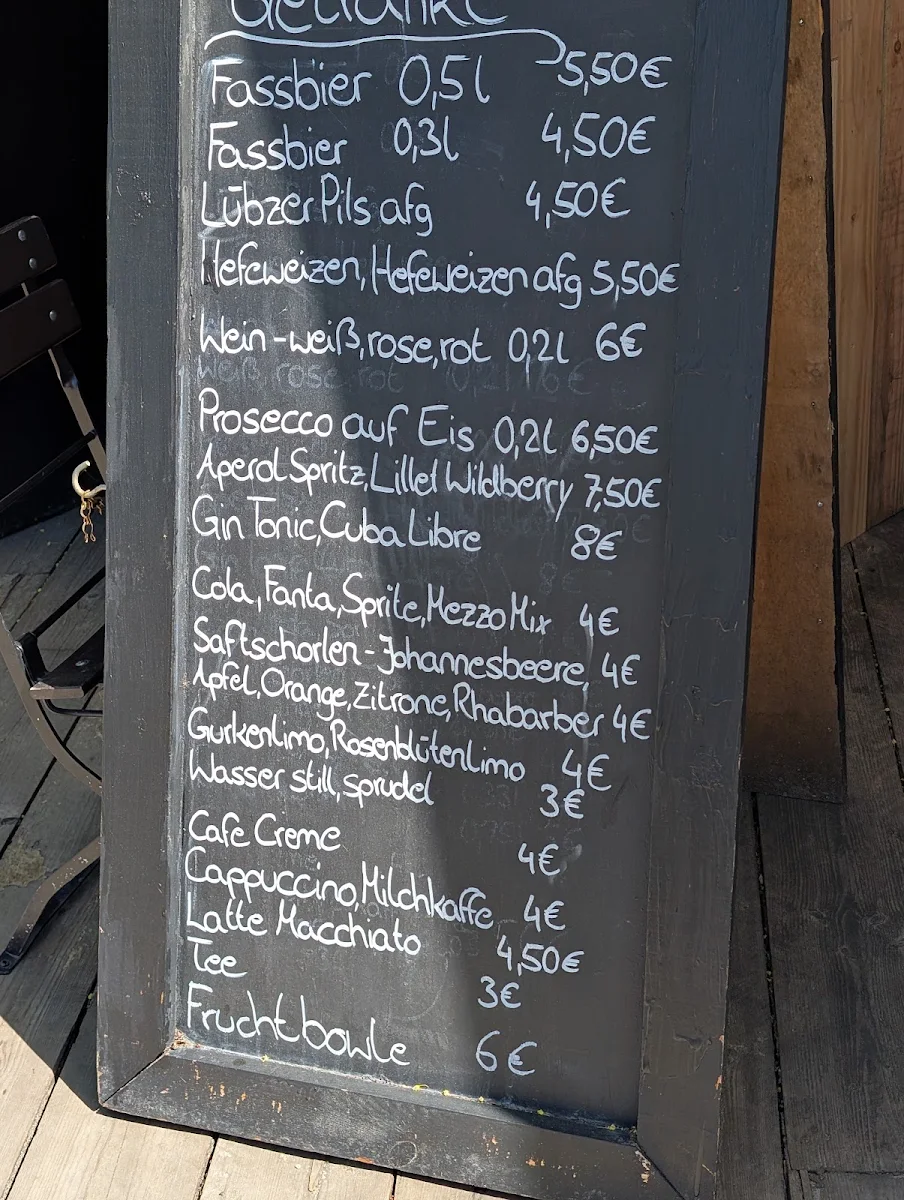 Getränke
Fassbier 0,5l 5,50€
Fassbier 0,3l 4,50€
Lübzer Pils afg 4,50€
Hefeweizen, Hefeweizen afg 5,50€
Wein - weiß, rose, rot 0,2l 6€
weiß, rose, rot 0,2l 6€
Prosecco auf Eis 0,2l 6,50€
Aperol Spritz, Lillet Wildberry 7,50€
Gin Tonic, Cuba Libre 8€
Cola, Fanta, Sprite, Mezzo Mix 4€
Saftschorlen - Johannesbeere, 4€
Apfel, Orange, Zitrone, Rhabarber 4€
Gurkenlimo, Rosenblütenlimo 4€
Wasser still, sprudel 3€
Cafe Creme 4€
Cappuccino, Milchkaffe 4€
Latte Macchiato 4,50€
Tee 3€
Fruchtbowle 6€